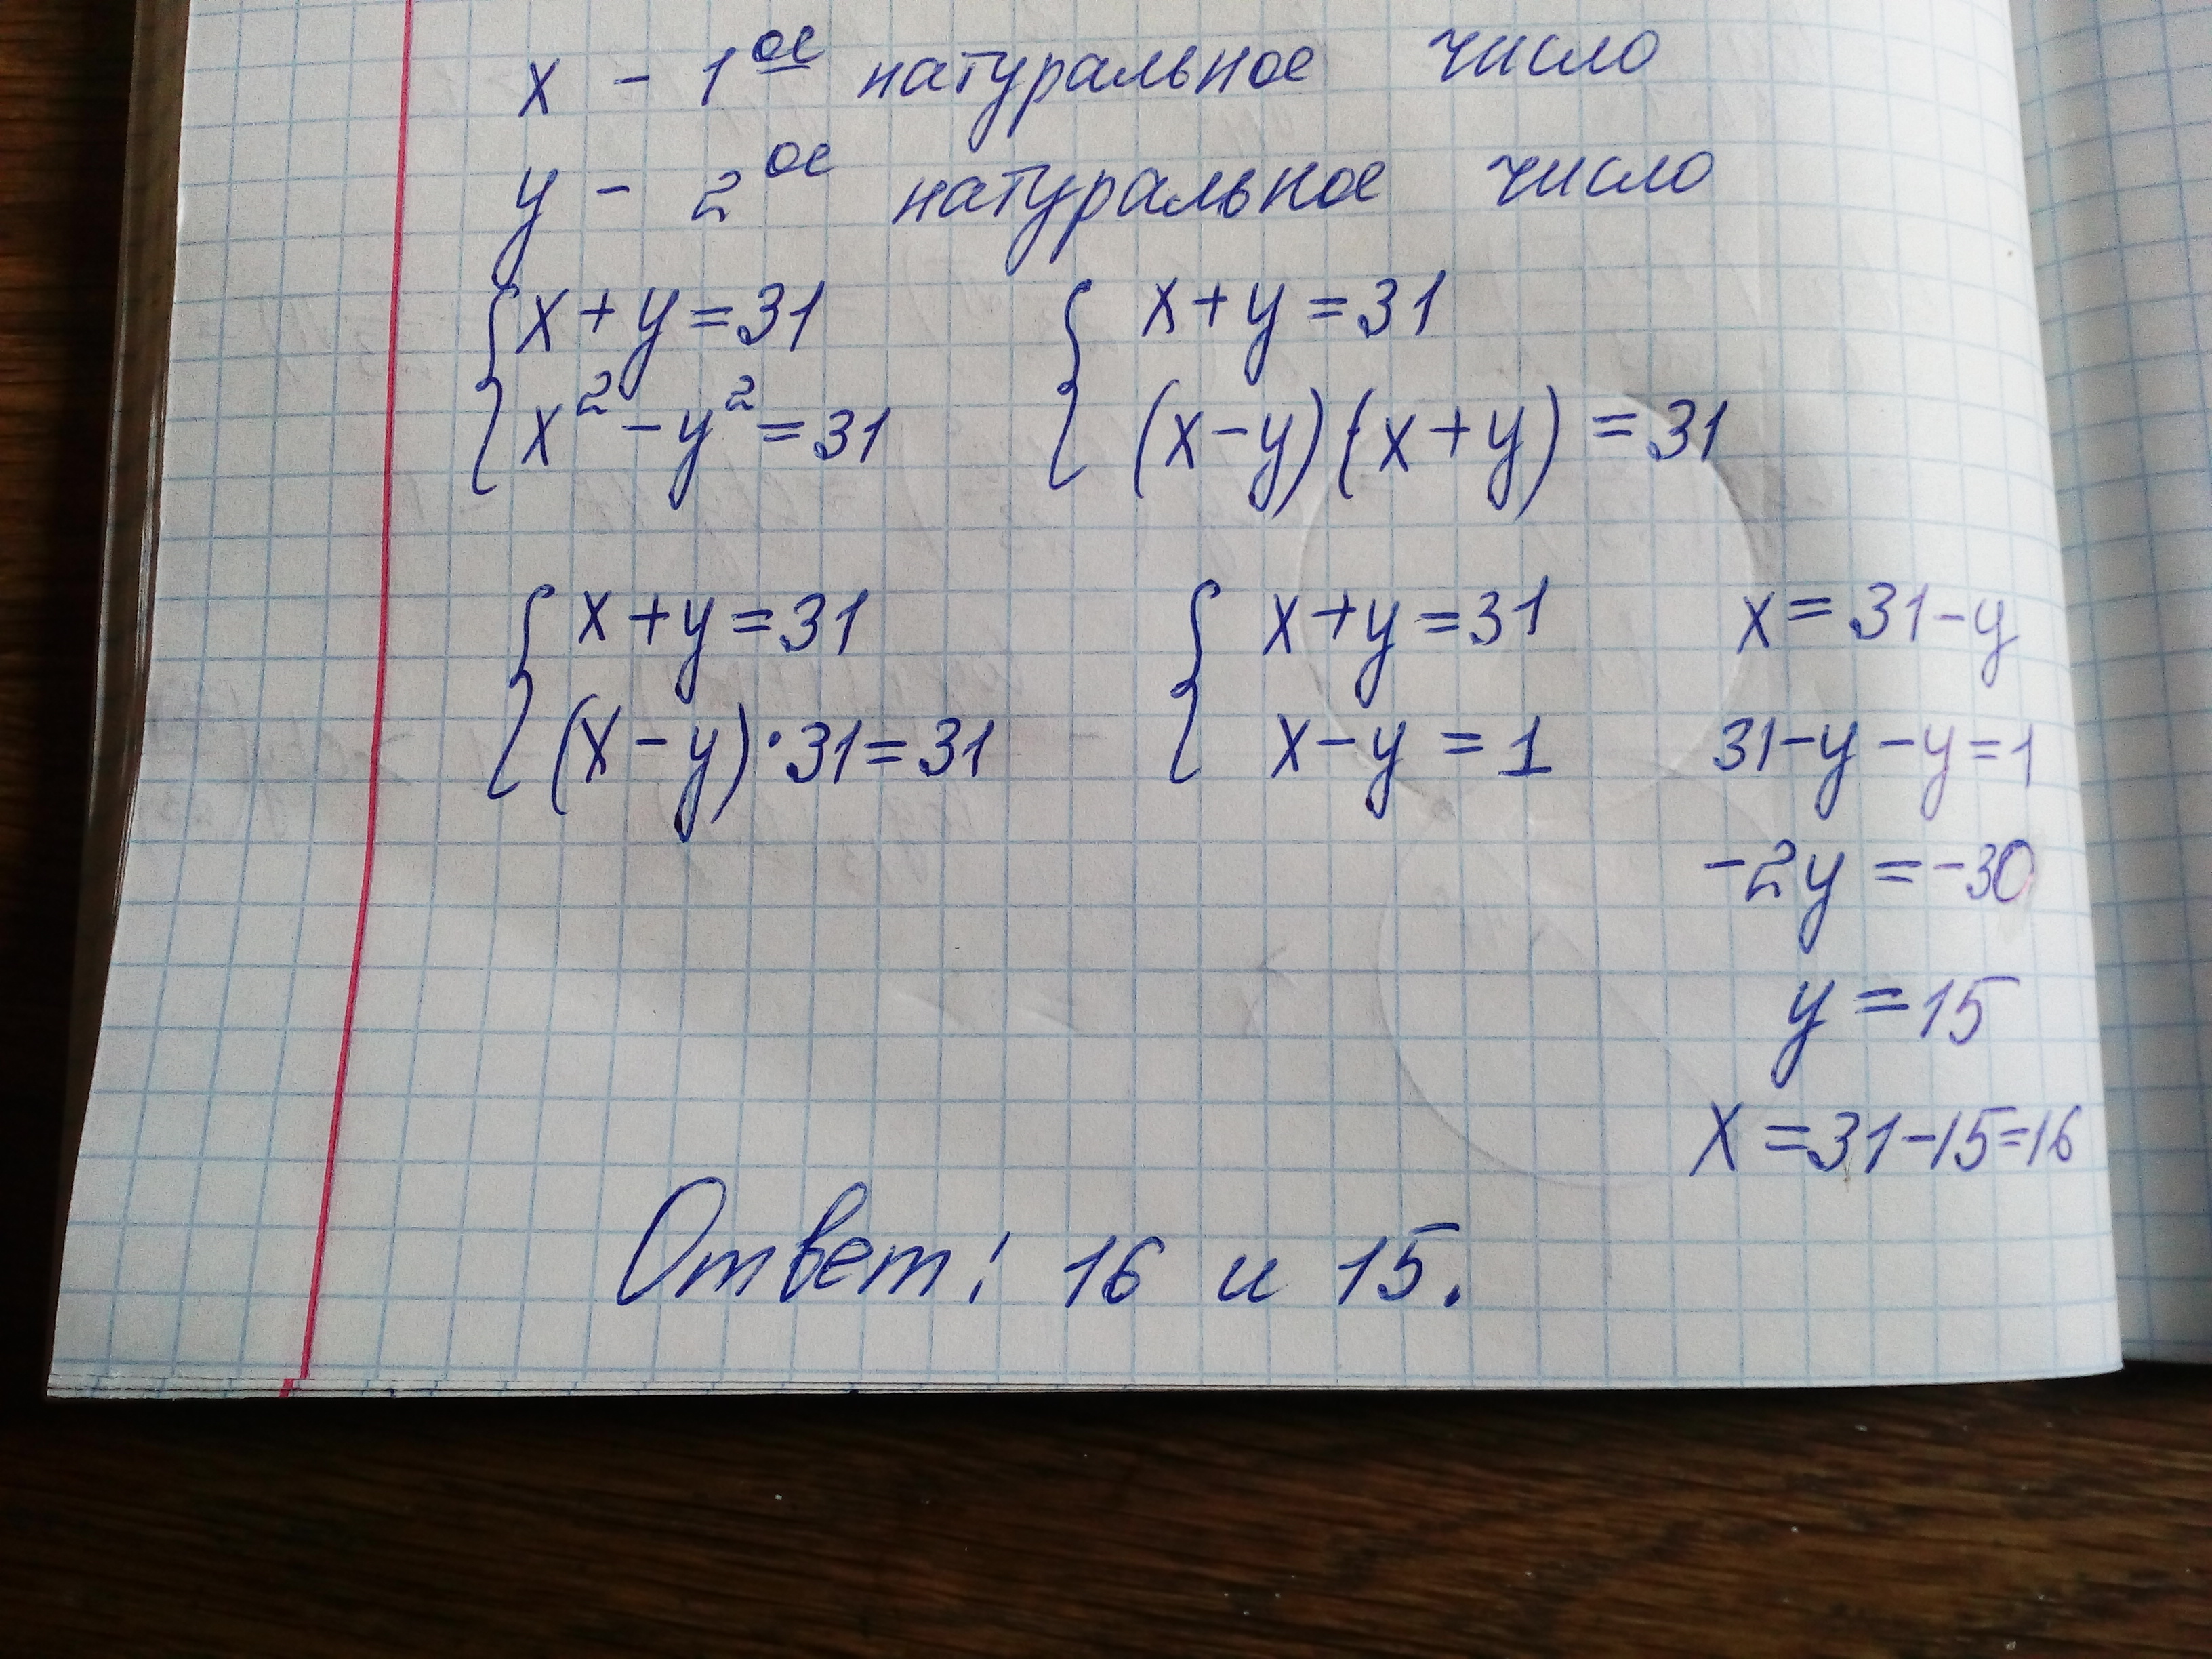 x - 1ое натуральное число
y - 2ое натуральное число
{ x+y=31 { x+y=31
x²-y²=31 (x-y)(x+y)=31
{ x+y=31 { x+y=31 x=31-y
(x-y)·31=31 x-y=1 31-y-y=1
-2y=-30
y=15
x=31-15=16
Ответ: 16 и 15.